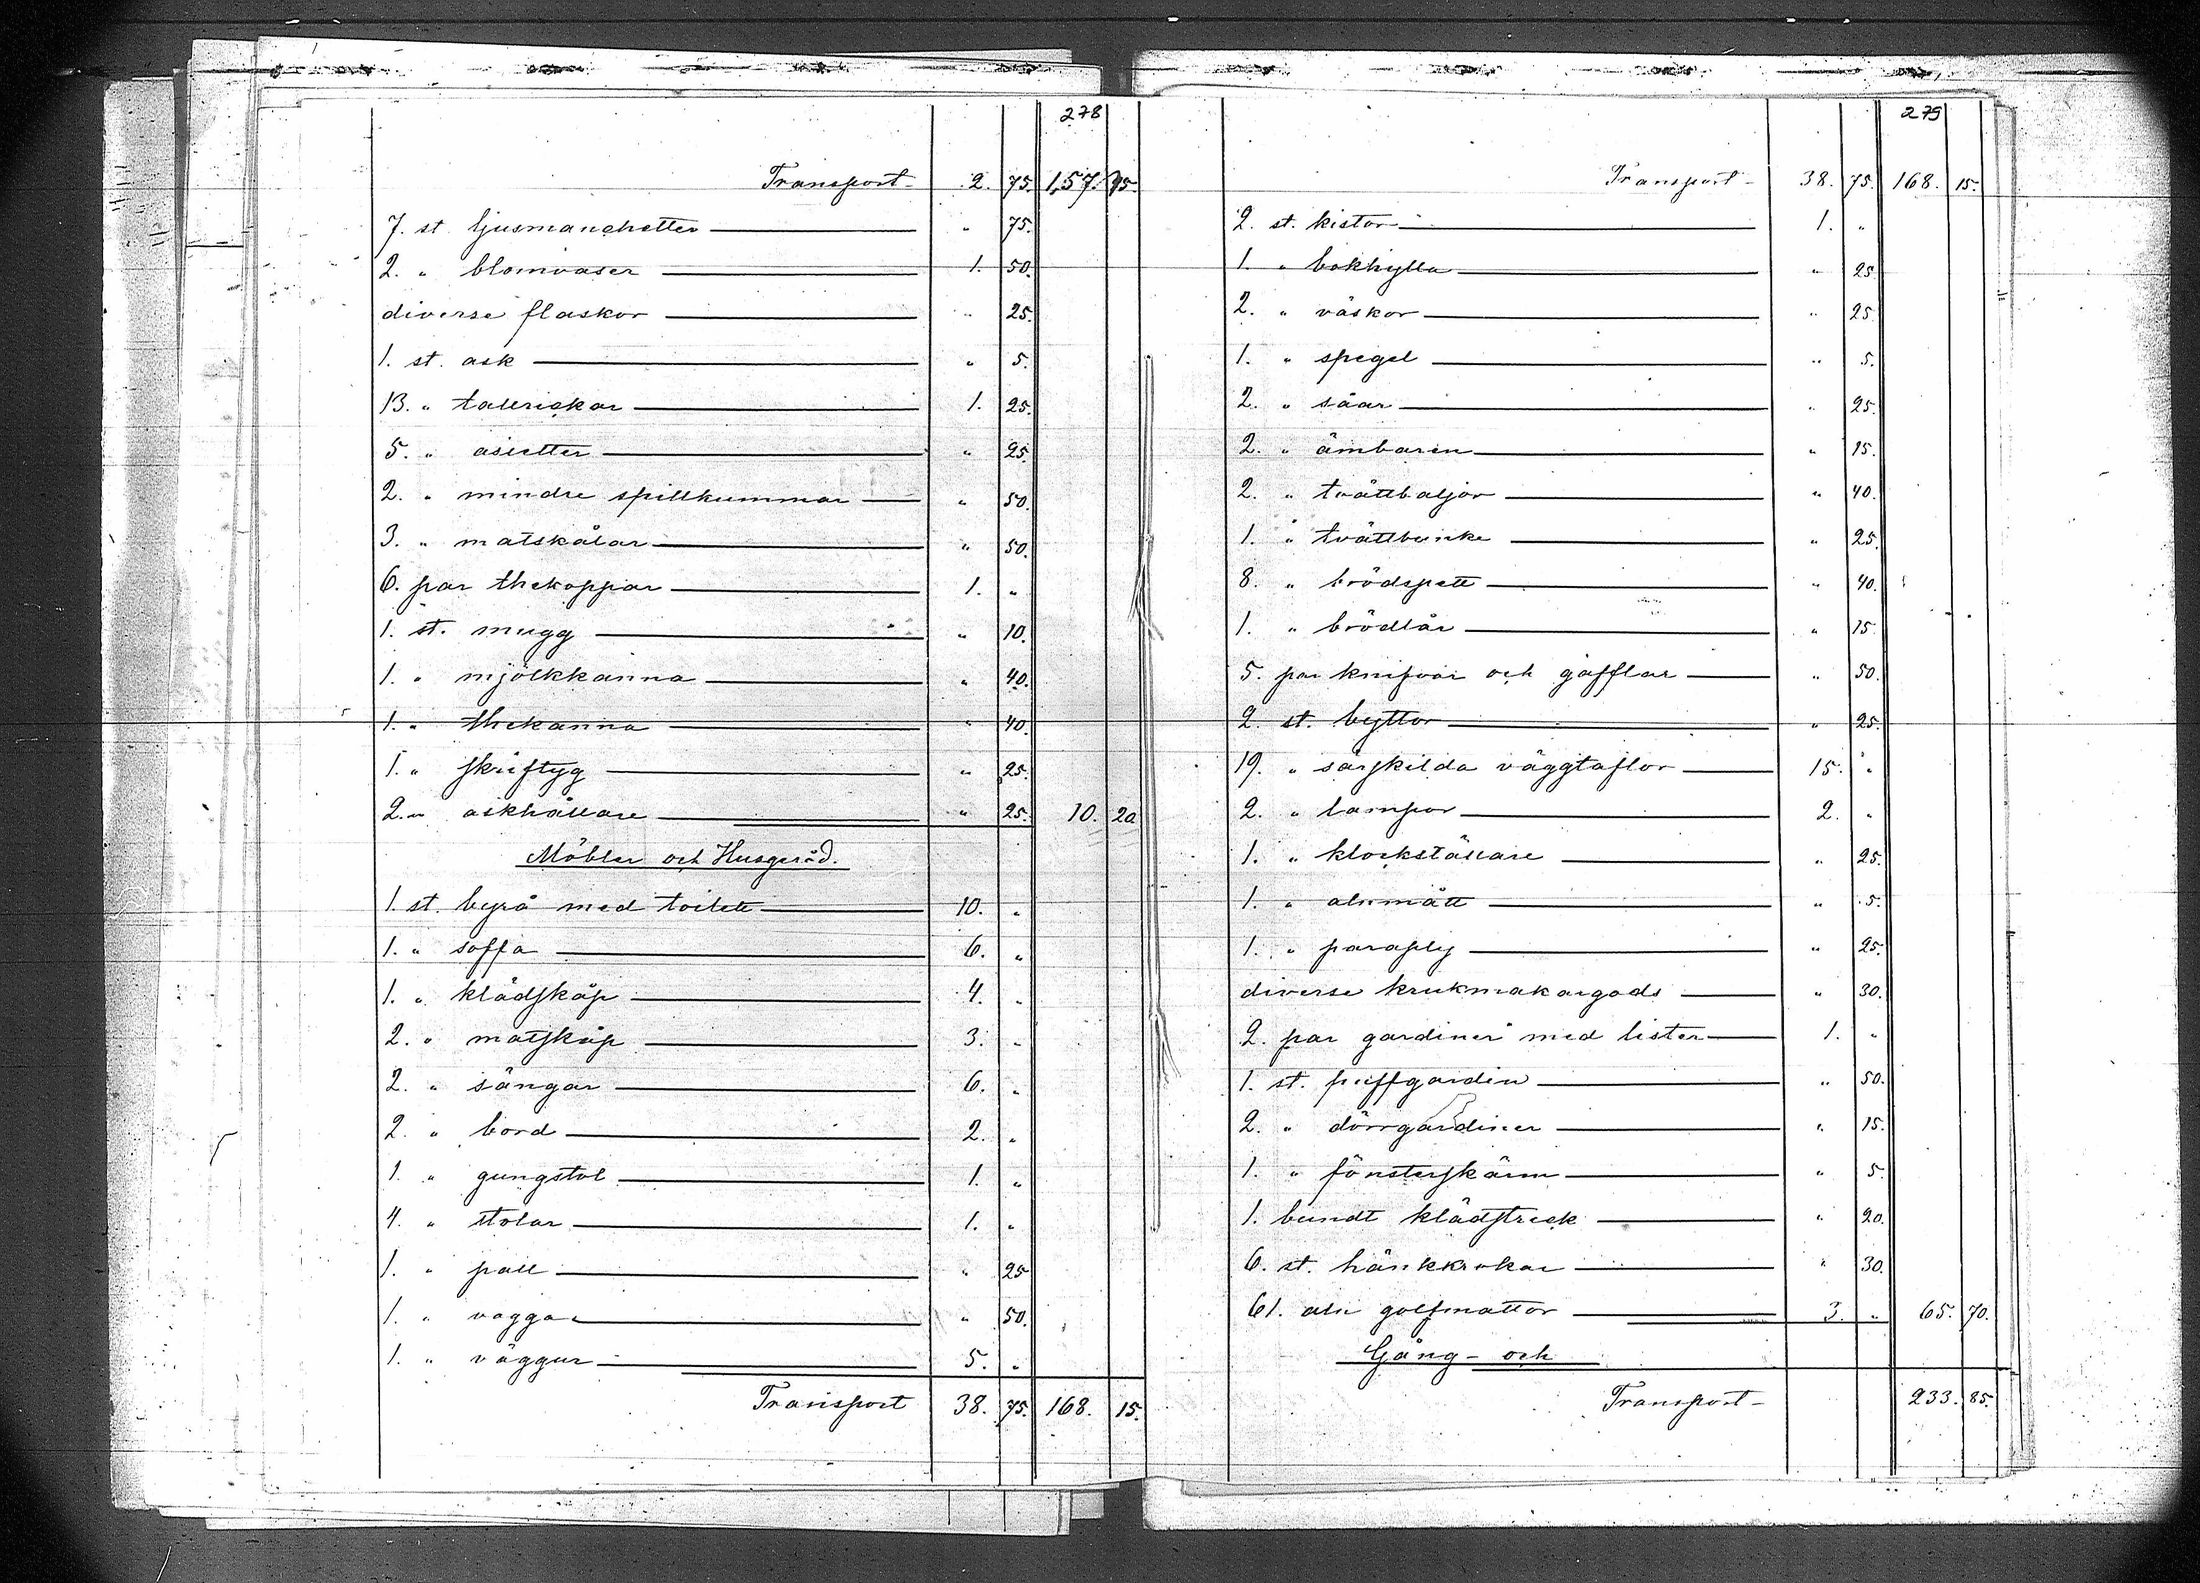 278
Transport 2. 75. 157. 95.
7. st. ljusmanchetter " 75.
2. " blomvaser 1. 50.
diverse flaskor " 25.
1. st. ask " 5.
13. " tallrickar 1. 25.
5. " asietter " 25.
2. " mindre spillkummar " 50.
3. " matskålar " 50.
6. par thekoppar 1. "
1. st. mugg " 10.
1. " mjölkkanna " 40.
1. " thekanna " 40.
1. " skriftyg " 25.
2. " askhållare " 25. 10. 20
Möbler och Husgeråd.
1. st. byrå med toilett 10. "
1. " soffa 6. "
1. " klädskåp 4. "
2. " matskåp 3. "
2. " sängar 6. "
2. " bord 2. "
1. " gungstol 1. "
4. " stolar 1. "
1. " pall " 25
1. " vagga " 50.
1. " väggur 5. "
Transport 38. 75. 168. 15.
279
Transport 38. 75. 168. 15.
2. st. kistor 1. "
1. " bokhylla " 25
2. " väskor " 25
1. " spegel " 5.
2. " såar " 25.
2. " ämbaren " 15.
2. " tvättbaljor " 40.
1. " tvättbunke " 25.
8. " brödspett " 40.
1. " brödlår " 15
5. par knifvar och gafflar " 50.
2. st. byttor " 25.
19. " särskilda väggtaflor 15. "
2. " lampor 2. "
1. " klockställare " 25.
1. " alnmått " 5.
1. " paraply " 25.
diverse krukmakargods " 30.
2. par gardiner med lister 1. "
1. st. puffgardin " 50.
2. " dörrgardiner " 15.
1. " fönsterskärm " 5.
1. bundt klädstreck " 20.
6. st. hänkkrokar " 30.
61. aln golfmattor 3. " 65. 70.
Gång- och
Transport 233. 85.